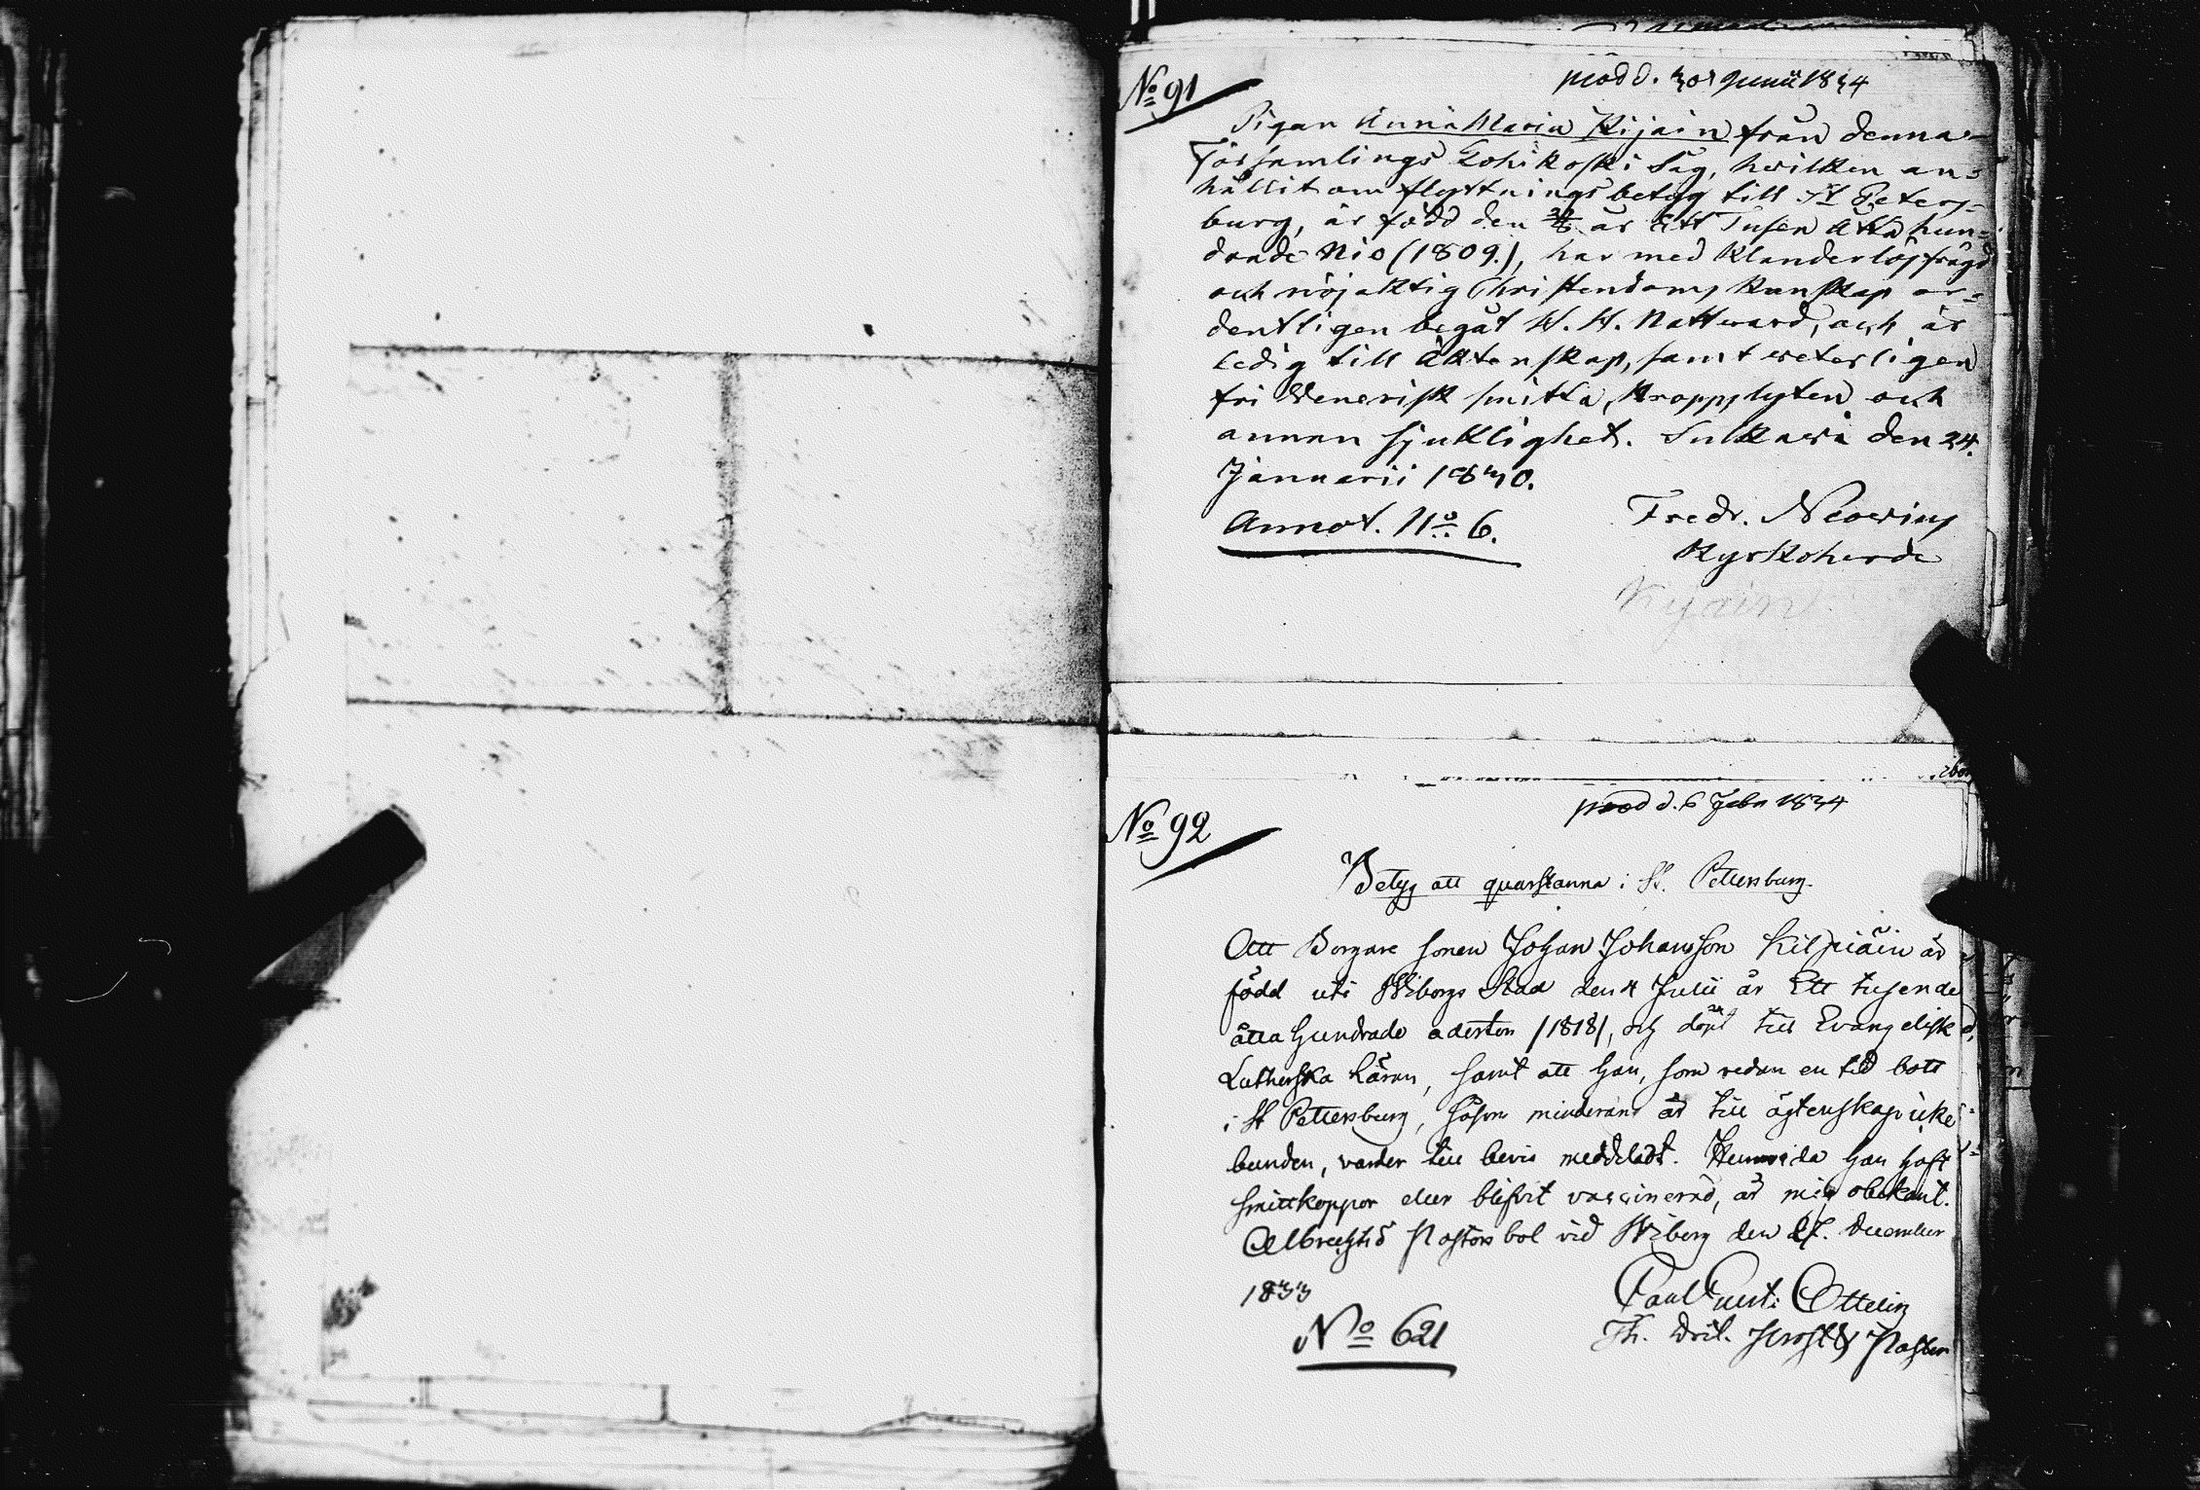 No 91
prod d. 30 Junii 1834
Pigan Anna Maria Kijain från denna
Församlings Lohikoski Såg, hvilken an=
hållit om flyttningsbetyg till St Peters=
burg, är född den år Ett Tusen åtta hun=
drade Nio (1809.), har med Klanderlös frägd
och nöjaktig Christendoms Kunskap or=
dentligen begåt H. H. Nattvard, och är
ledig till äktenskap, samt veterligen
fri Venerisk smitta, Kroppslyten och
annan sjuklighet. Sulkava den 24.
Januarii 1830.
Annot. No 6.
Fredr. Neovius
Kyrkoherde
Kijain
No 92
prod d. 6 Febr 1834
Betyg att quarstanna i St. Pettersburg.
Att Borgare sonen Johan Johansson Kilpiäin är
född uti Wiborgs Stad den 4 Julii år Ett tusende
åtta hundrade aderton /1818/, och döpt till Evangelisk
Lutherska Läran, samt att han, som redan en tid bott
i St Pettersburg, såsom minderårig är till ägtenskap icke
bunden, varder till bevis meddeladt. Huruvida han haft
smittkoppor eller blifvit vaccinerad, är mig obekant.
Albrechts Pastors bol vid Wiborg den 27. December
1833
No 621
Paul Ottelin
Th. Prost & Pastor